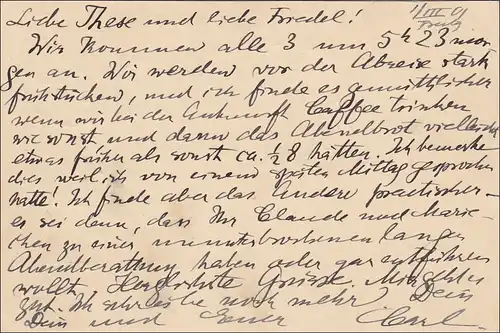 1/III 01
Liebe These und liebe Friedel!
Wir kommen alle 3 um 5h 23 mor-
gen an. Wir werden vor der Abreise stark
frühstücken, und ich finde es gemüthlicher
wenn wir bei der Ankunft Caffee trinken
wie sonst und dann das Abendbrot vielleicht
etwas früher als sonst ca. ½ 8 hätten. Ich bemerke
dies weil ich von einem späten Mittag gesprochen
hatte! Ich finde aber das Andere practischer –
es sei denn, dass Ihr Claude und Marie-
chen zu einer ununterbrochenen langen
Abendberathung haben oder gar entführen
wollt. Herzlichste Grüsse.
zht. Ich sehr liebe noch mehr Dein
Dein und Euer Carl